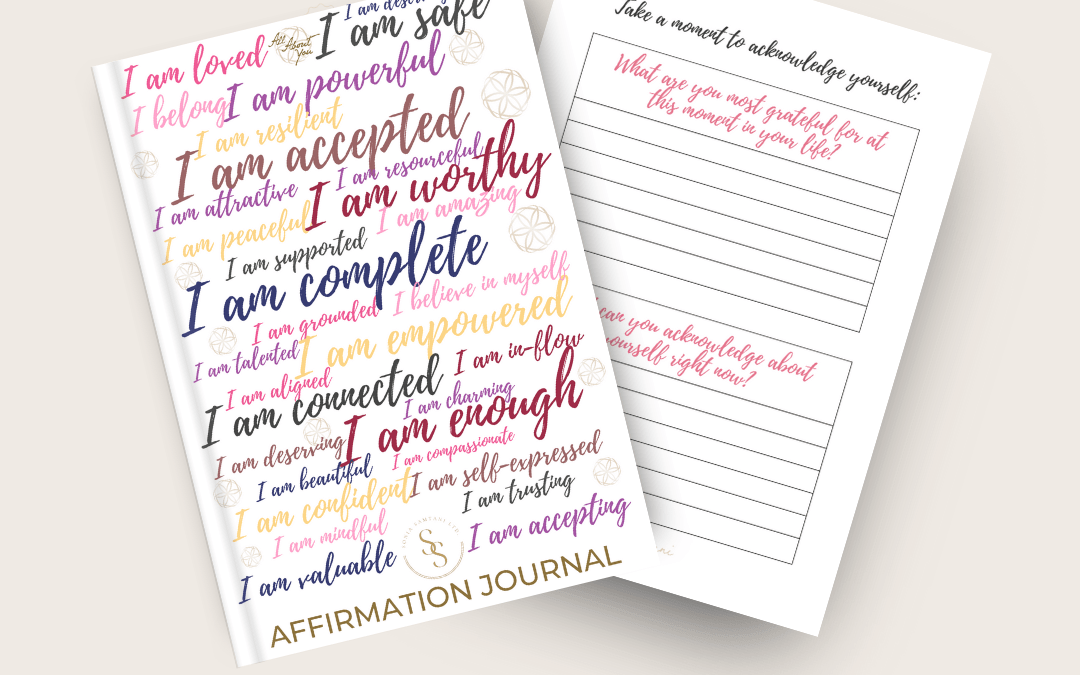 I am
I am safe
All About You
I am loved
I am powerful
I belong
I am resilient
I am accepted
I am resourceful
I am attractive
I am worthy
I am amazing
I am peaceful
I am supported
I am complete
I believe in myself
I am grounded
I am empowered
I am talented
I am in-flow
I am aligned
I am connected
I am charming
I am enough
I am deserving
I am compassionate
I am beautiful
I am self-expressed
I am confident
I am trusting
I am mindful
I am accepting
SS
I am valuable
AFFIRMATION JOURNAL
Take a moment to acknowledge yourself:
What are you most grateful for at
this moment in your life?
can you acknowledge about
yourself right now?